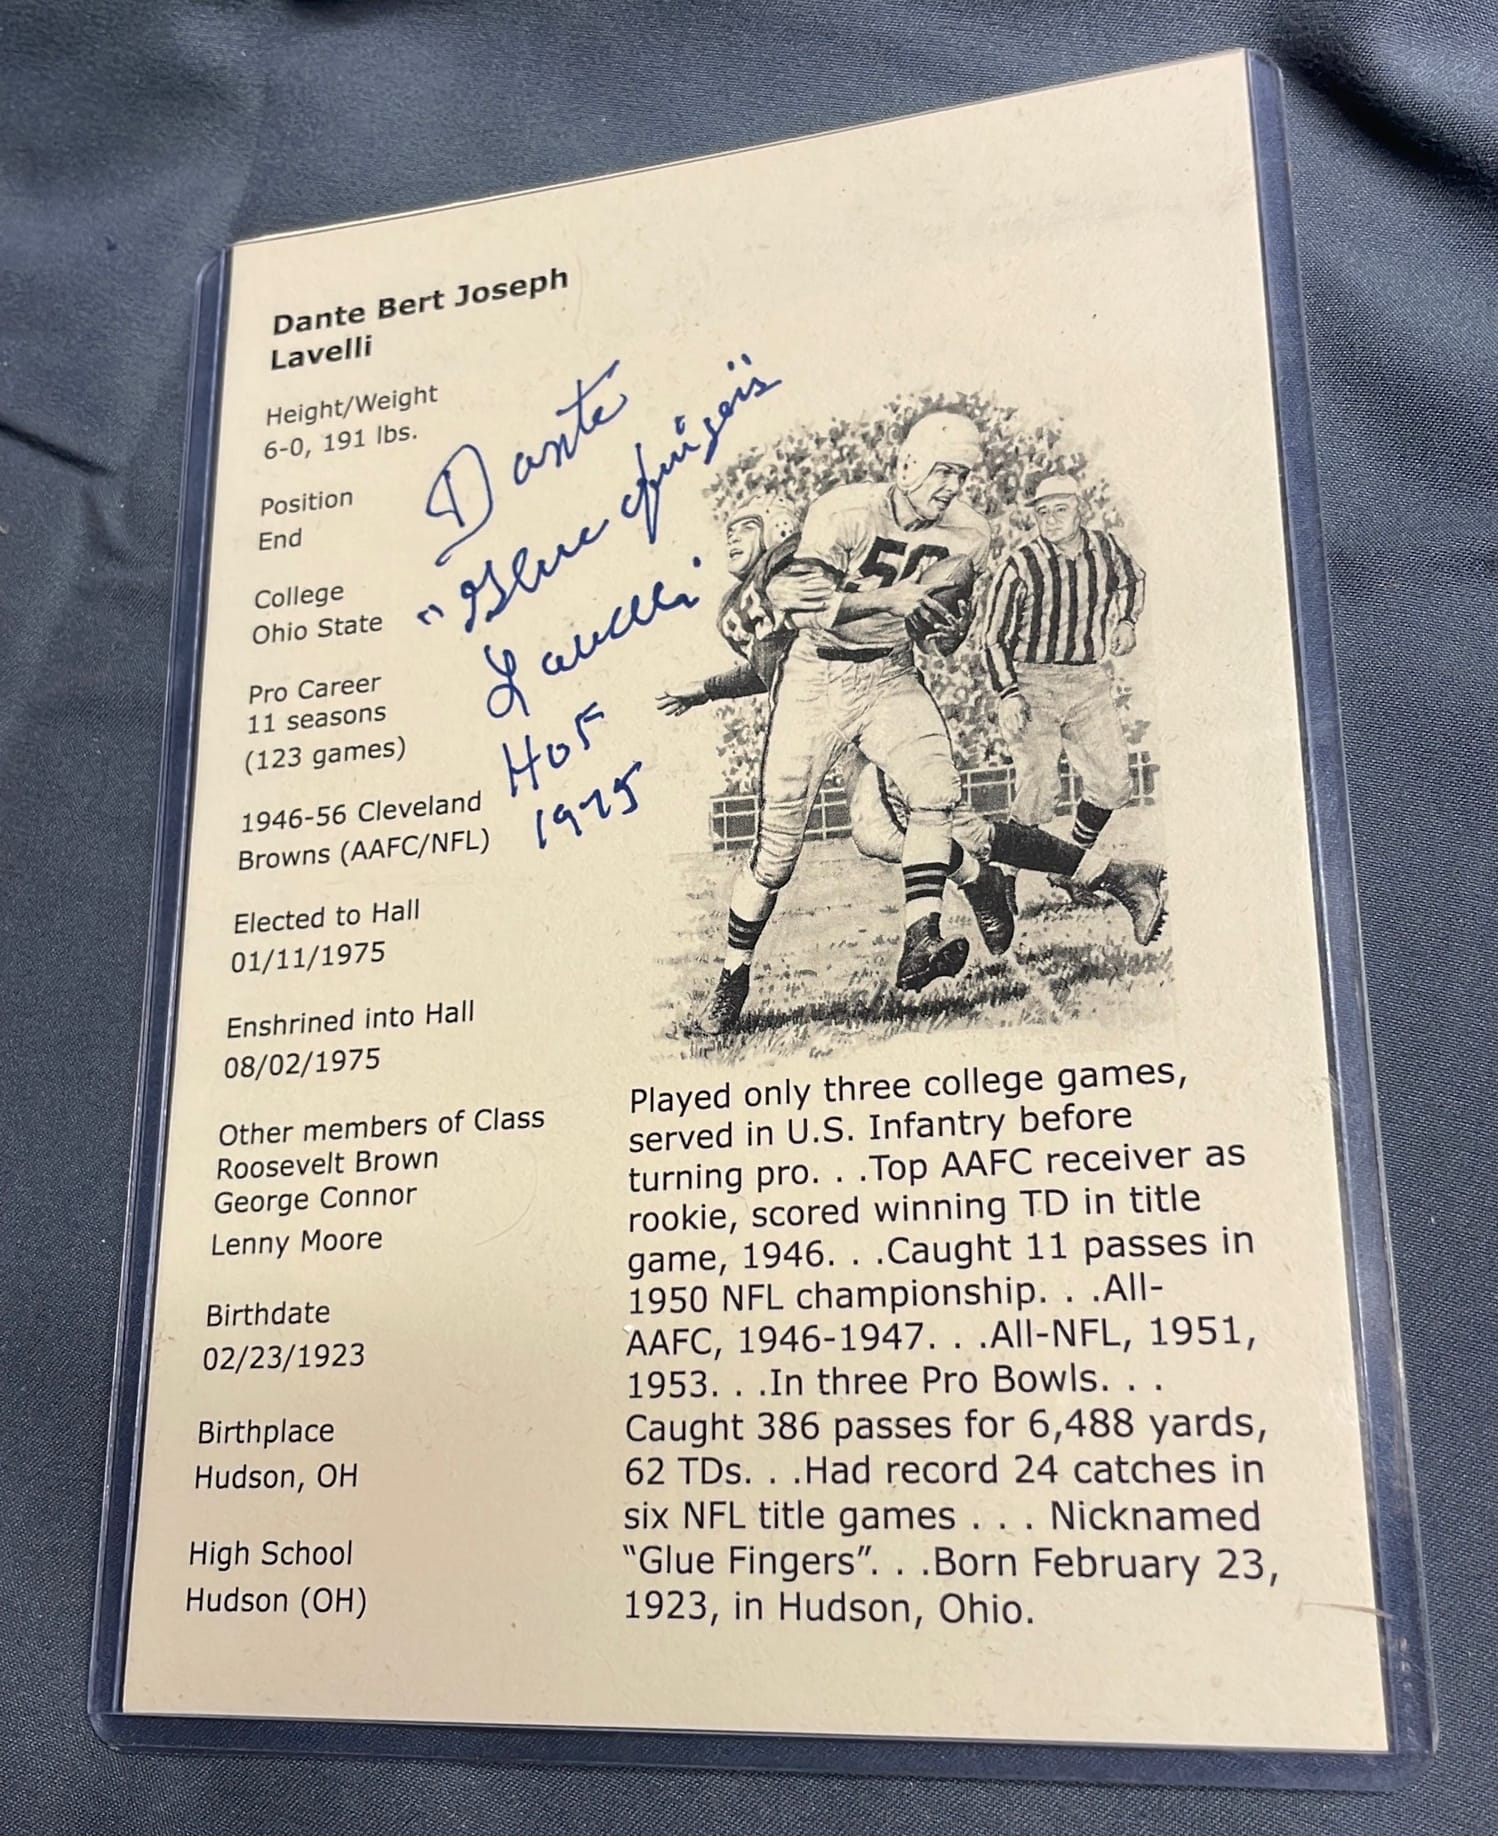 Dante Bert Joseph
Lavelli
Height/Weight
6-0, 191 lbs.
Position
End
College
Ohio State
Pro Career
11 seasons
(123 games)
1946-56 Cleveland
Browns (AAFC/NFL)
Elected to Hall
01/11/1975
Enshrined into Hall
08/02/1975
Other members of Class
Roosevelt Brown
George Connor
Lenny Moore
Birthdate
02/23/1923
Birthplace
Hudson, OH
High School
Hudson (OH)
Dante
"Glue Fingers"
Lavelli
HOF
1975
50
Played only three college games,
served in U.S. Infantry before
turning pro. . .Top AAFC receiver as
rookie, scored winning TD in title
game, 1946. . .Caught 11 passes in
1950 NFL championship. . .All-
AAFC, 1946-1947. . .All-NFL, 1951,
1953. . .In three Pro Bowls. . .
Caught 386 passes for 6,488 yards,
62 TDs. . .Had record 24 catches in
six NFL title games . . . Nicknamed
“Glue Fingers”. . .Born February 23,
1923, in Hudson, Ohio.